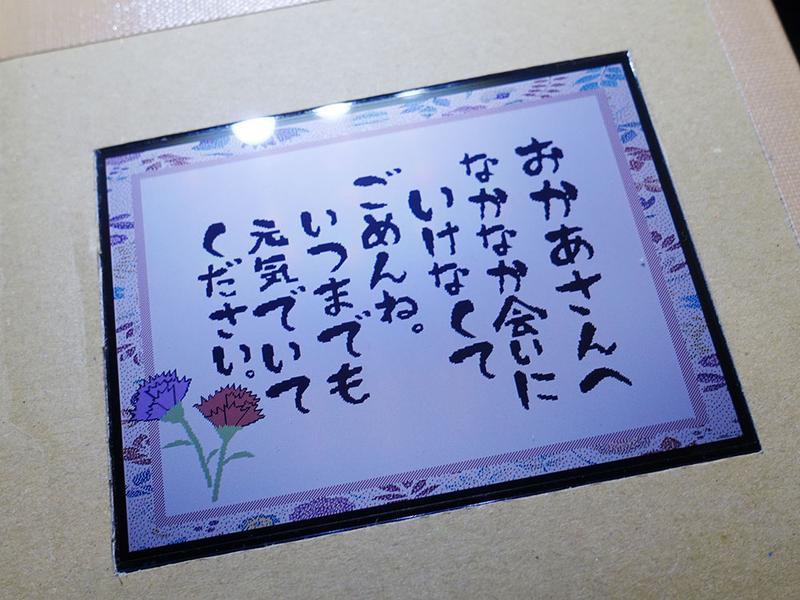 おかあさんへ
なかなか会いに
いけなくて
ごめんね。
いつまでも
元気でいて
ください。